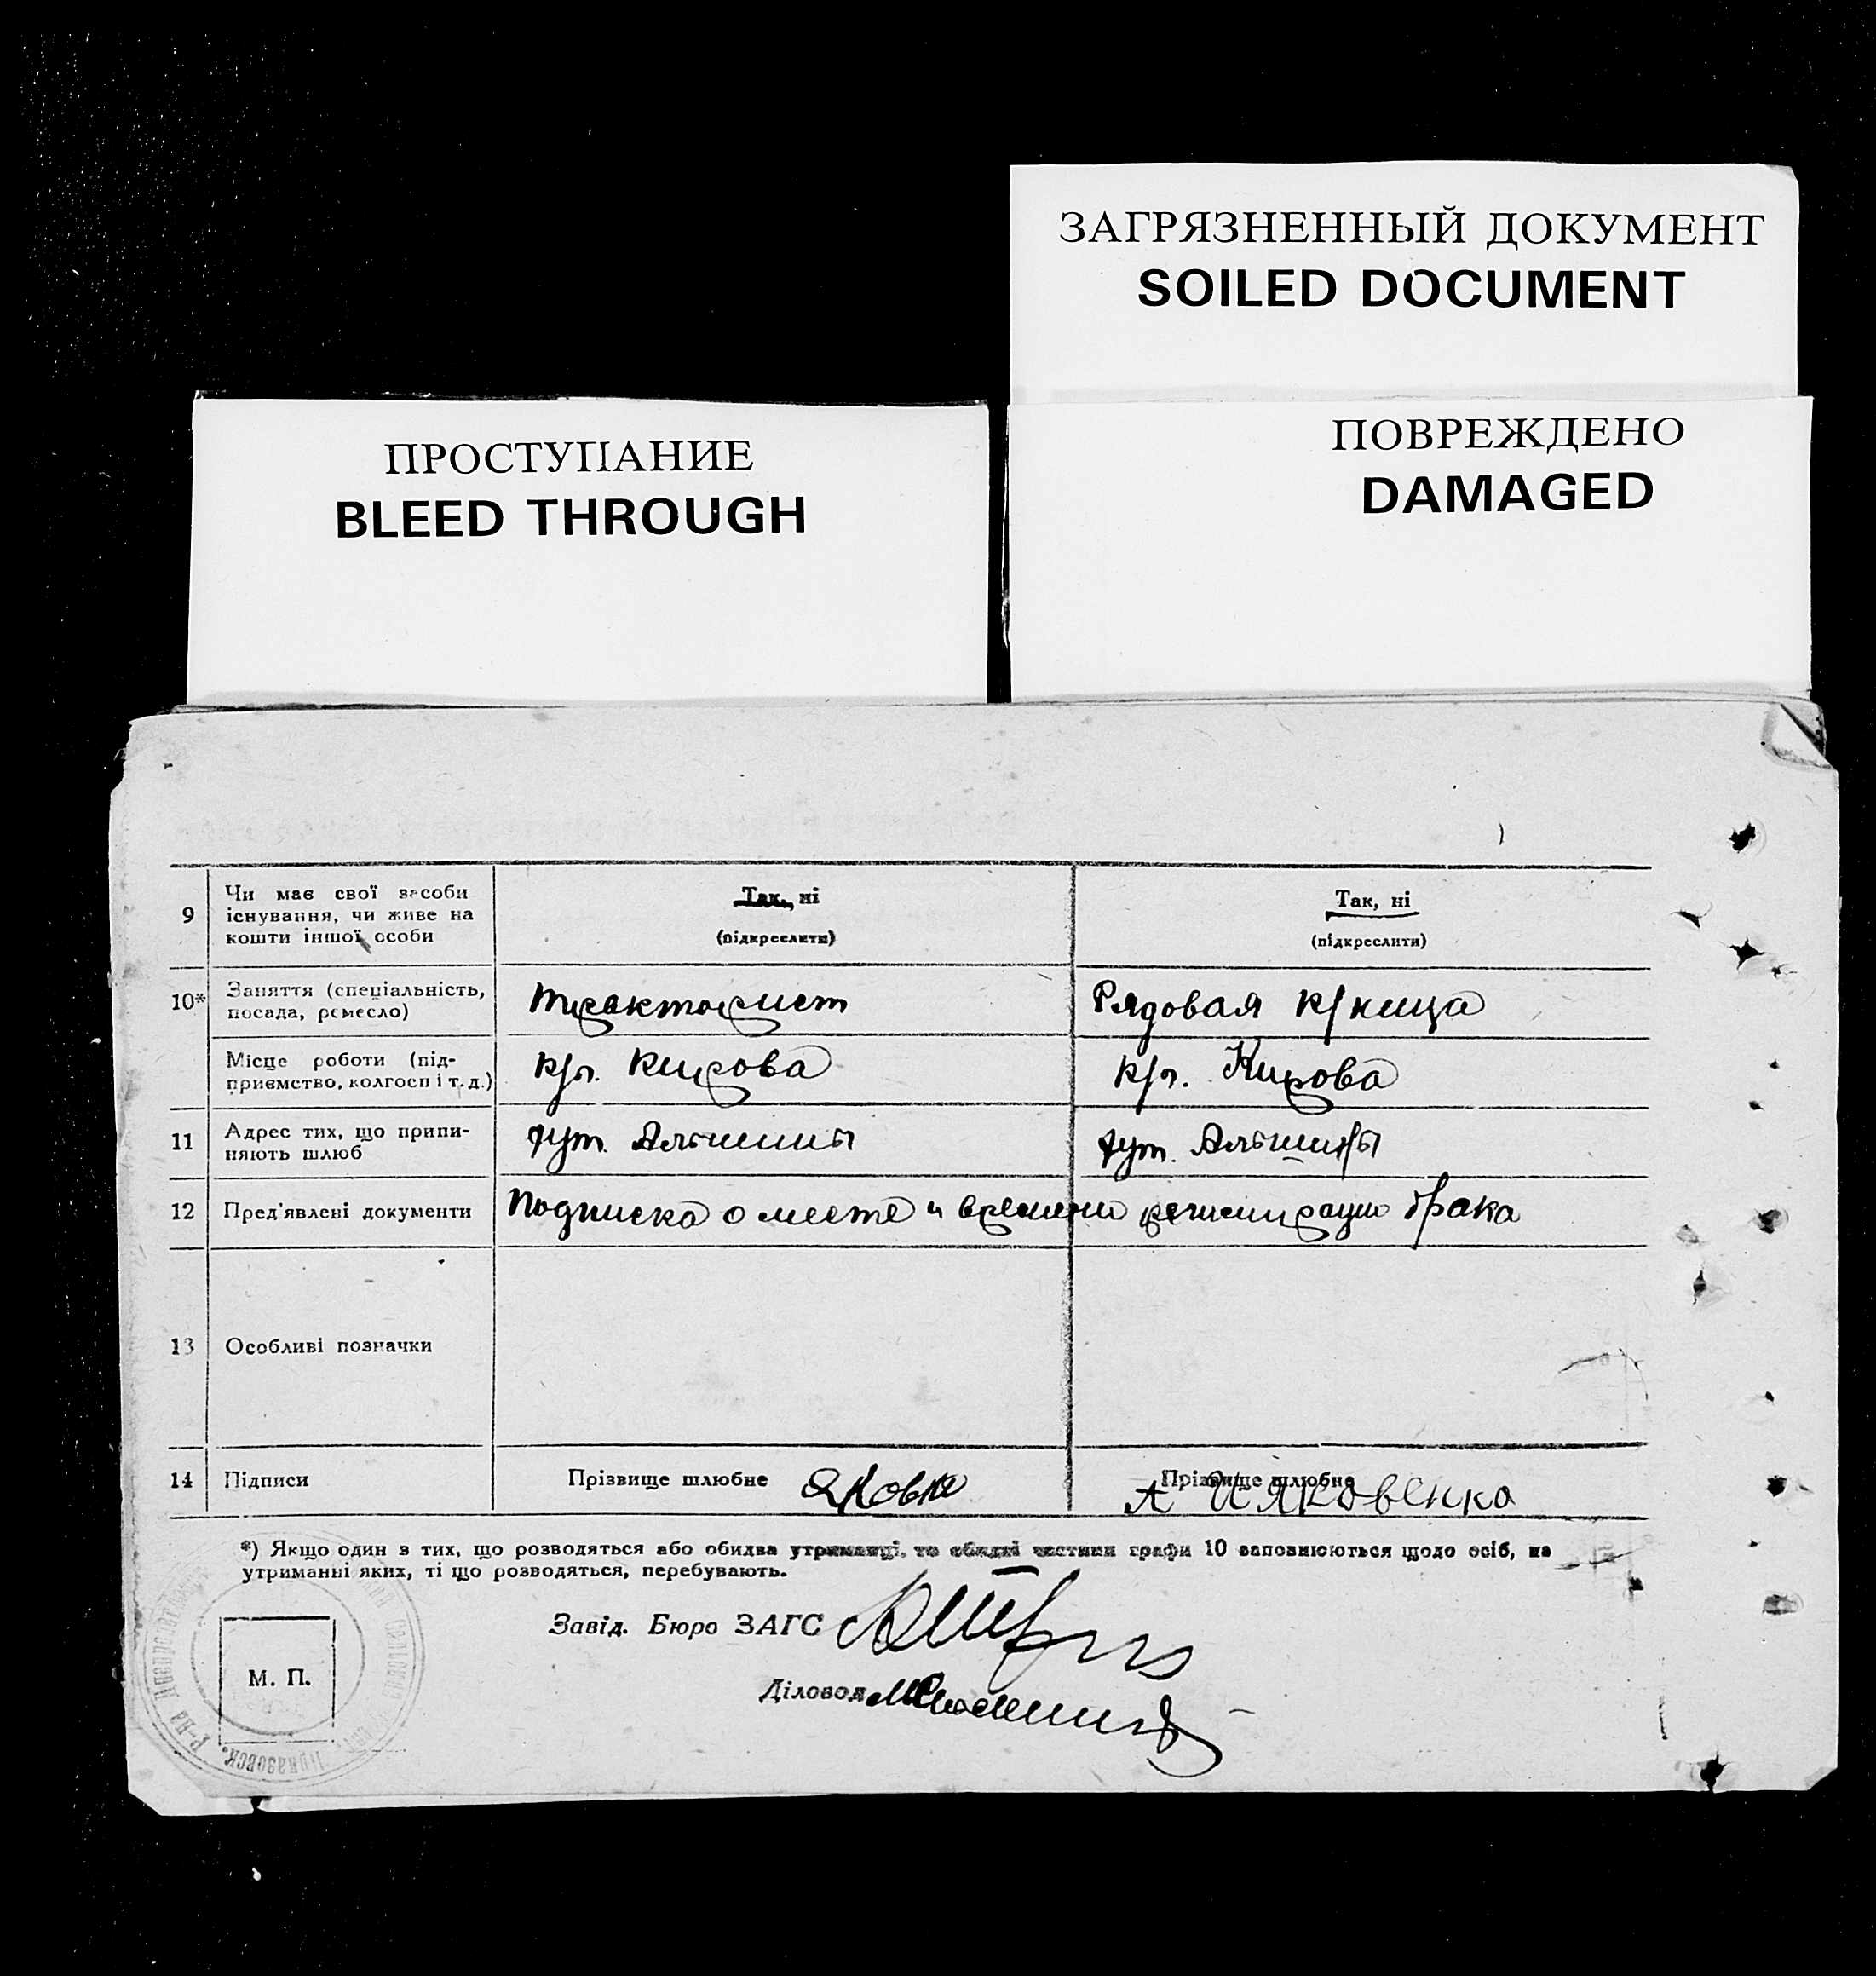 ЗАГРЯЗНЕННЫЙ ДОКУМЕНТ
SOILED DOCUMENT
ПРОСТУПАНИЕ
BLEED THROUGH
ПОВРЕЖДЕНО
DAMAGED
9
Чи має свої засоби
існування, чи живе на
кошти іншої особи
Так, ні
(підкреслити)
Так, ні
(підкреслити)
10*
Заняття (спеціальність,
посада, ремесло)
тракторист
Рядовая к/ница
Місце роботи (під-
приємство, колгосп і т. д.)
к/л. Кирова
к/л. Кирова
11
Адрес тих, що припи-
няють шлюб
хут.
хут.
12
Пред'явлені документи
Подписка о месте и времени регистрации брака
13
Особливі позначки
14
Підписи
Прізвище шлюбне
Прізвище шлюбне
Яковенко
*) Якщо один з тих, що розводяться або обидва утриманці, то обидві частини графи 10 заповнюються щодо осіб, на
утриманні яких, ті що розводяться, перебувають.
Завід. Бюро ЗАГС
М. П.
Діловод
Приазовск. Р-на